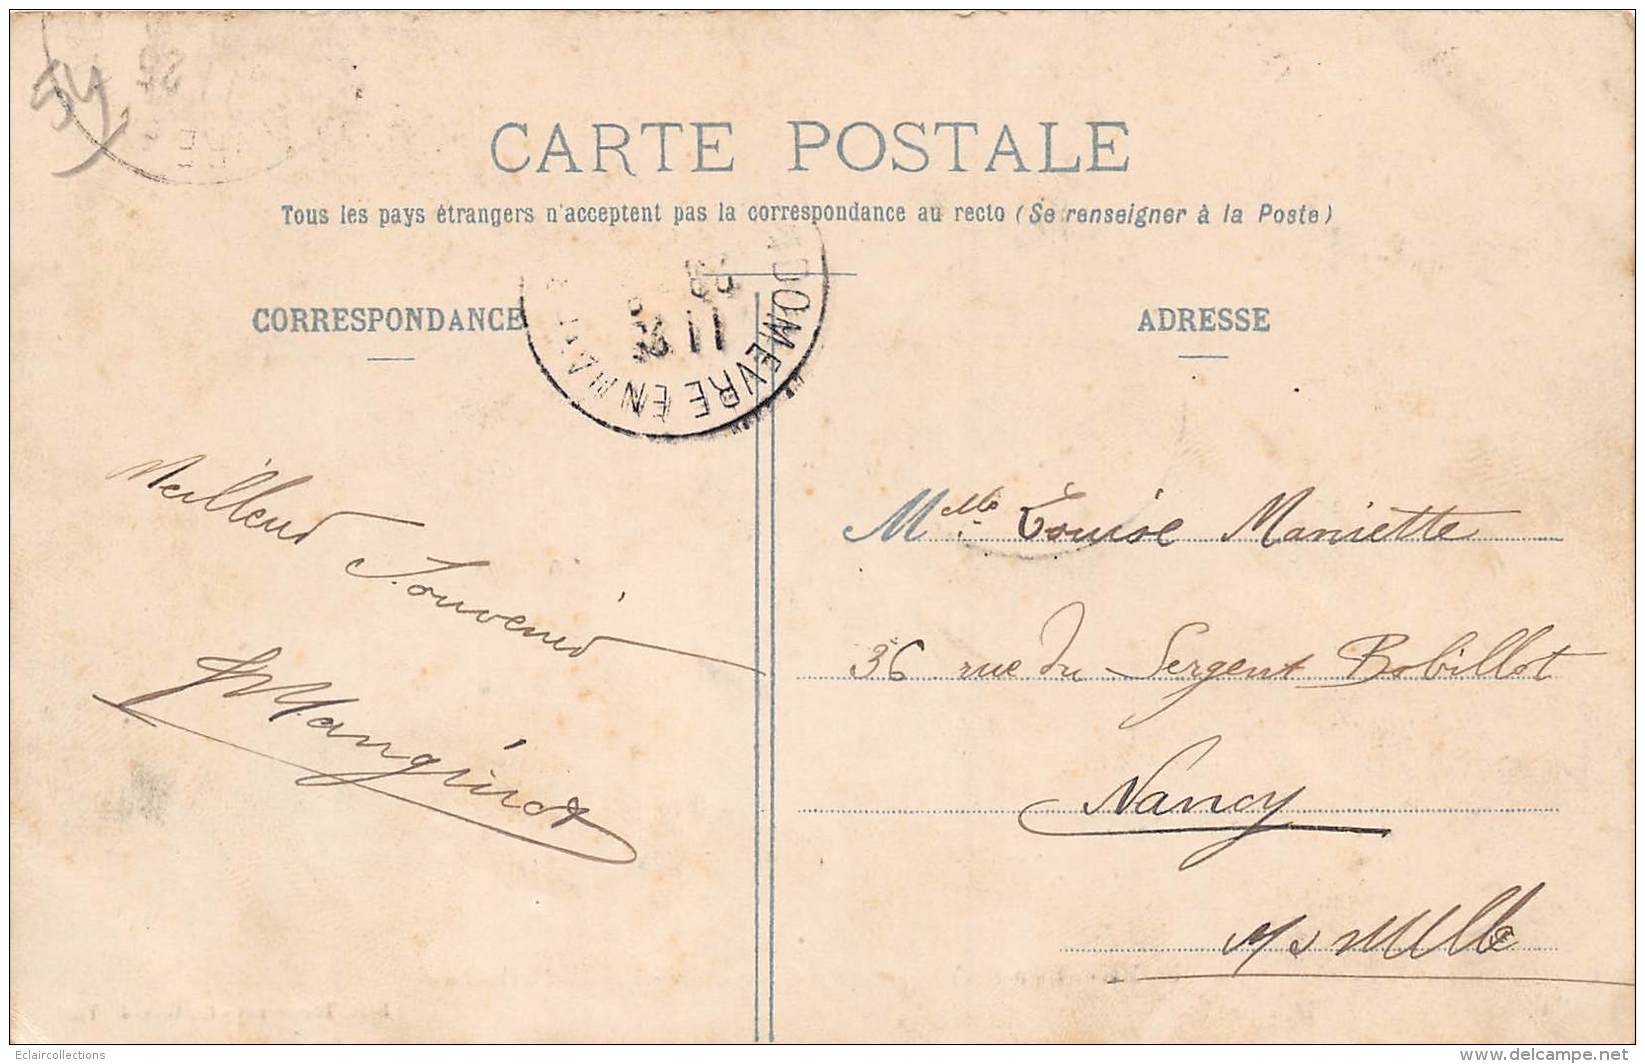 54
CARTE POSTALE
Tous les pays étrangers n'acceptent pas la correspondance au recto (Se renseigner à la Poste)
CORRESPONDANCE
ADRESSE
DOMEVRE EN HAYE
11
Meilleur
Souvenir
Manginot
Melle Louise Mariette
36 rue du Sergent Bobillot
Nancy
Eclaircollections
www.delcampe.net